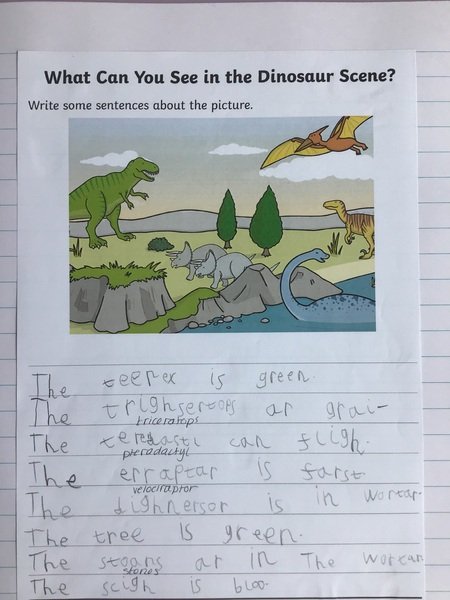 What Can You See in the Dinosaur Scene?
Write some sentences about the picture.
The teerex is green.
The trighsertops ar grai-
triceratops
The teredasti can fligh.
pteradactyl
The erraptar is farst.
velociraptor
The dighnersor is in wortar.
The tree is green.
The stoans ar in The wortar
stones
The scigh is bloo.